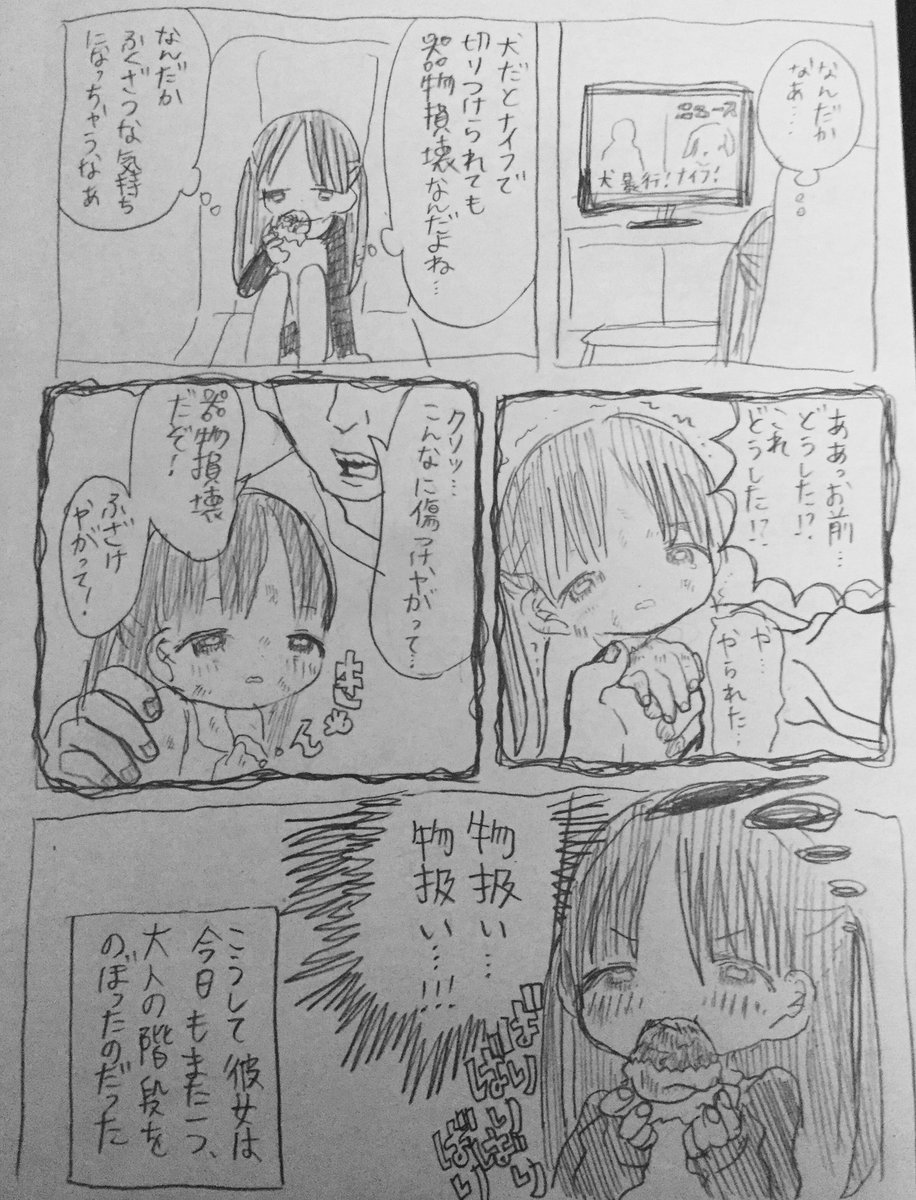 なんだか
なぁ…
ニュース
犬 暴行!ナイフ!
犬だとナイフで
切りつけられても
器物損壊なんだよね…
なんだか
ふくざつな気持ち
になっちゃうなぁ
ああっお前…
どうした!?
これ
どうした!?
や…
やられた…
クソッ…
こんなに傷つけやがって…
器物損壊
だぞ!
ふざけ
やがって!
きゅん…
物扱い…
物扱い…!!!
ぎり
ばりばり
ばりばり
こうして彼女は、
今日もまた一つ、
大人の階段を
のぼったのだった